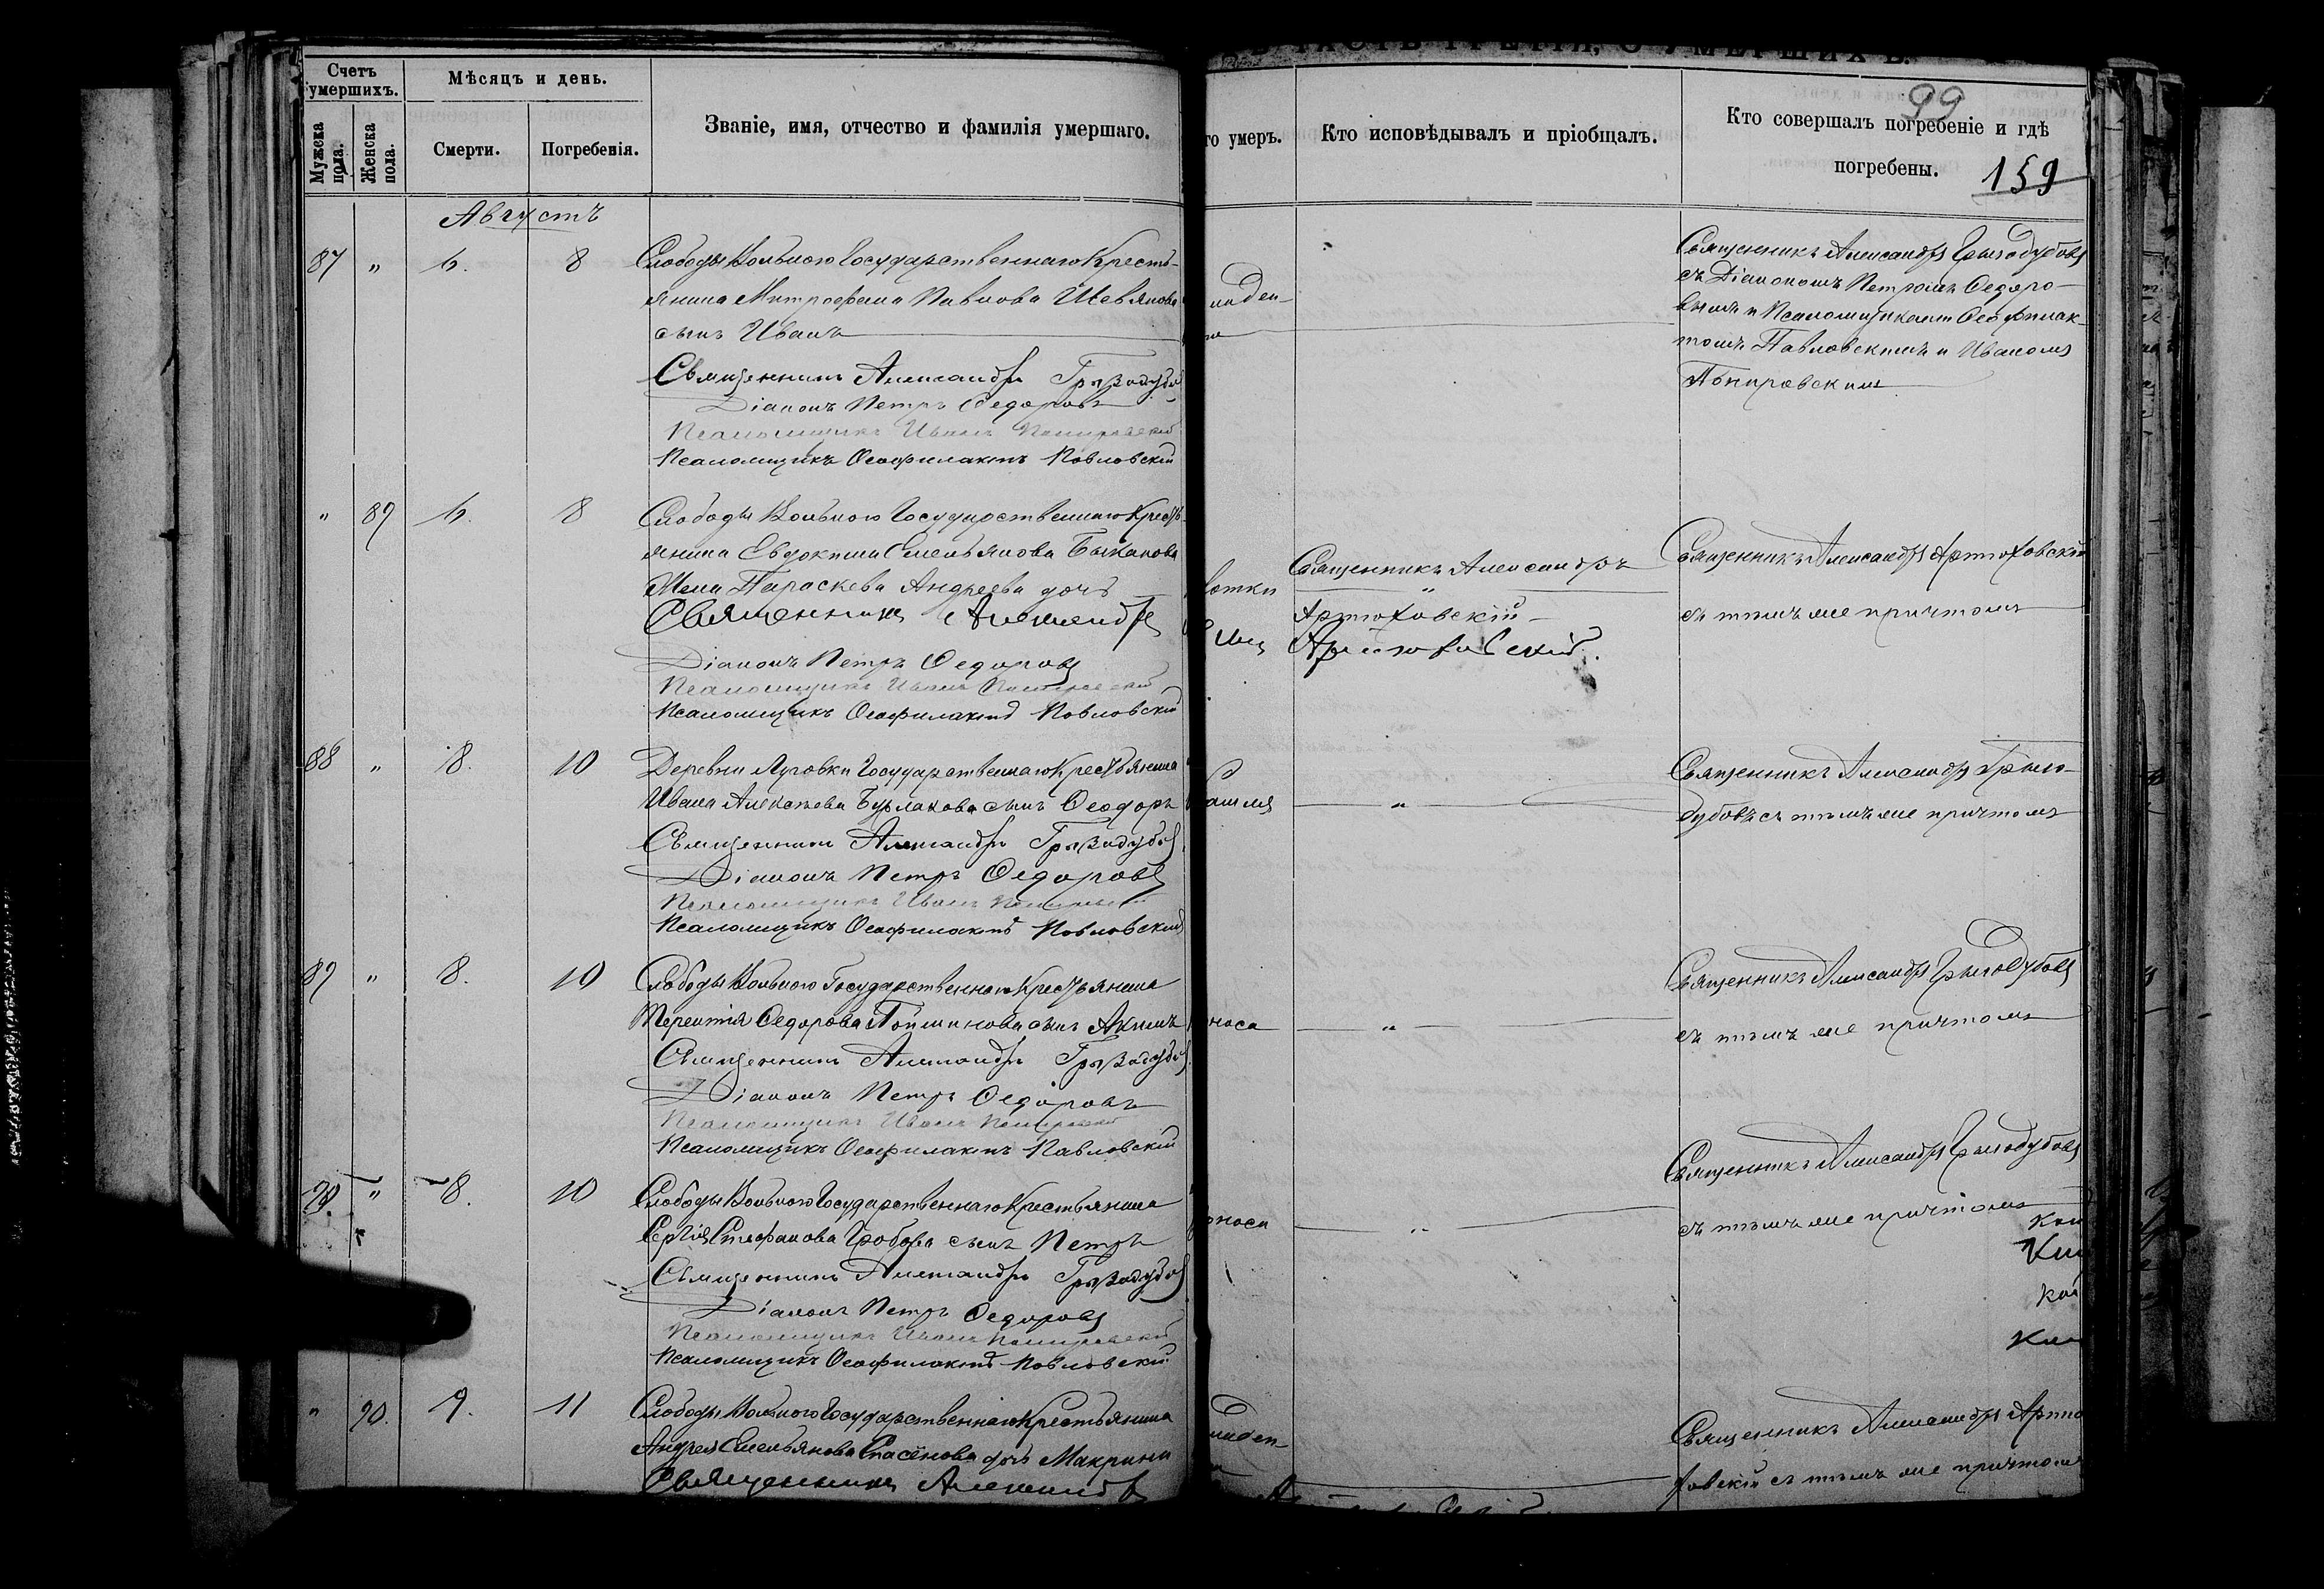 ЧАСТЬ ТРЕТІЯ, О УМЕРШИХЪ.
Счетъ умершихъ.
Мѣсяцъ и день.
Званіе, имя, отчество и фамилія умершаго.
Мужеска пола.
Женска пола.
Смерти.
Погребенія.
го умеръ.
Кто исповѣдывалъ и пріобщалъ.
Кто совершалъ погребеніе и гдѣ
погребены.
99
159
Августъ
87 " 6. 8
Слободы Вольного Государственнаго Кресть-
янина Митрофана Павлова
сынъ Иванъ
Священникъ Александръ Грызодубов
Діаконъ Петръ Ѳедоровъ
Псаломщикъ Иванъ
Псаломщикъ Ѳеофилактъ Павловскій
Священникъ Александръ Грызодубовъ
съ Діакономъ Петромъ Ѳедоро-
вымъ и Псаломщиками Ѳеофилак-
томъ Павловскимъ и Иваномъ
" 89 6. 8
Слободы Вольного Государственнаго Кресть-
янина Евдокима Емельянова
жена Параскева Андреева дочь
Священникъ Александръ
Діаконъ Петръ Ѳедоровъ
Псаломщикъ Иванъ
Псаломщикъ Ѳеофилактъ Павловскій
Священникъ Александръ
Артюховскій
Артюховскій
Священникъ Александръ Артюховскій
съ тѣмъ же причтомъ
88 " 8. 10
Деревни Луговки Государственнаго Крестьянина
Ивана Алексѣева Бурлакова сынъ Ѳеодоръ
Священникъ Александръ Грызодубов
Діаконъ Петръ Ѳедоровъ
Псаломщикъ Иванъ
Псаломщикъ Ѳеофилактъ Павловскій
ашля
"
Священникъ Александръ Грызо-
дубовъ съ тѣмъ же причтомъ
89 " 8. 10
Слободы Вольного Государственнаго Крестьянина
Терентія Ѳедорова сынъ Акимъ
Священникъ Александръ Грызодубов
Діаконъ Петръ Ѳедоровъ
Псаломщикъ Иванъ
Псаломщикъ Ѳеофилактъ Павловскій
носа
"
Священникъ Александръ Грызодубовъ
съ тѣмъ же причтомъ
90. " 8. 10
Слободы Вольного Государственнаго Крестьянина
Сергія Стефанова сынъ Петръ
Священникъ Александръ Грызодубов
Діаконъ Петръ Ѳедоровъ
Псаломщикъ Иванъ
Псаломщикъ Ѳеофилактъ Павловскій
оноса
"
Священникъ Александръ Грызодубовъ
съ тѣмъ же причтомъ
" 90. 9. 11
Слободы Вольного Государственнаго Крестьянина
Андрея Емельянова дочь Макрина
Священникъ Александръ
ладен-
Священникъ Александръ Артю-
ховскій съ тѣмъ же причтом